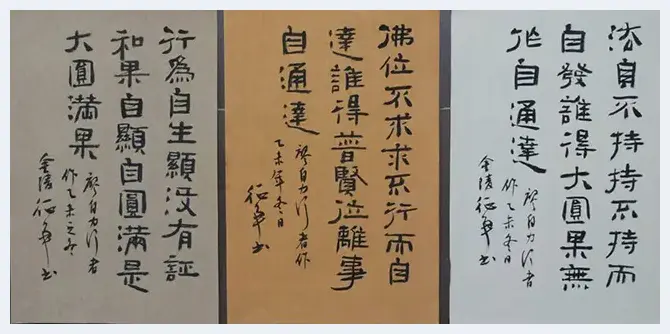 法身不持持不持而
自發誰得大圓果無
作自通達
廖自力行者
作乙未冬日
金陵征军书
佛位不求求不行而自
達誰得普賢位離事
自通達
廖自力行者作
乙未年冬日
征军书
行為自生顯没有証
和果自顯自圓滿是
大圓滿果
廖自力行者
作乙未之冬
金陵征军书